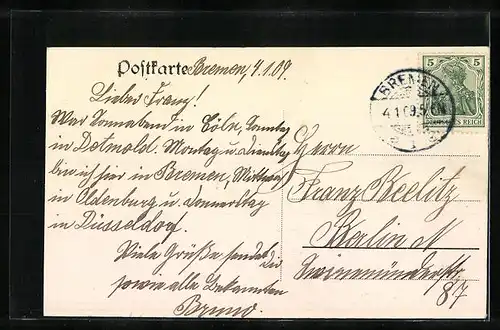 Postkarte Bremen, 4.1.09.
Lieber Franz!
War Sonnabend in Cöln, Sonntag
in Detmold. Montag u. Dienstag
bin ich hier in Bremen, Mittwoch
in Oldenburg u. Donnerstag
in Düsseldorf.
Viele Grüße sendet Dir
sowie alle Bekannten
Bruno.
Herrn
Franz Beelitz
Berlin N
Swinemünderstr.
87
5 5
BREMEN
4.1.09.5
1
REICH